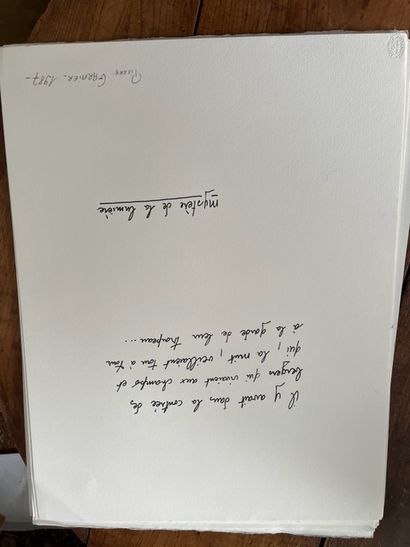 il y avait dans la contrée des
bergers qui vivaient aux champs et
qui, la nuit, veillaient tour à tour
à la garde de leur troupeau...
mystère de la lumière
Pierre GARNIER - 1987 -